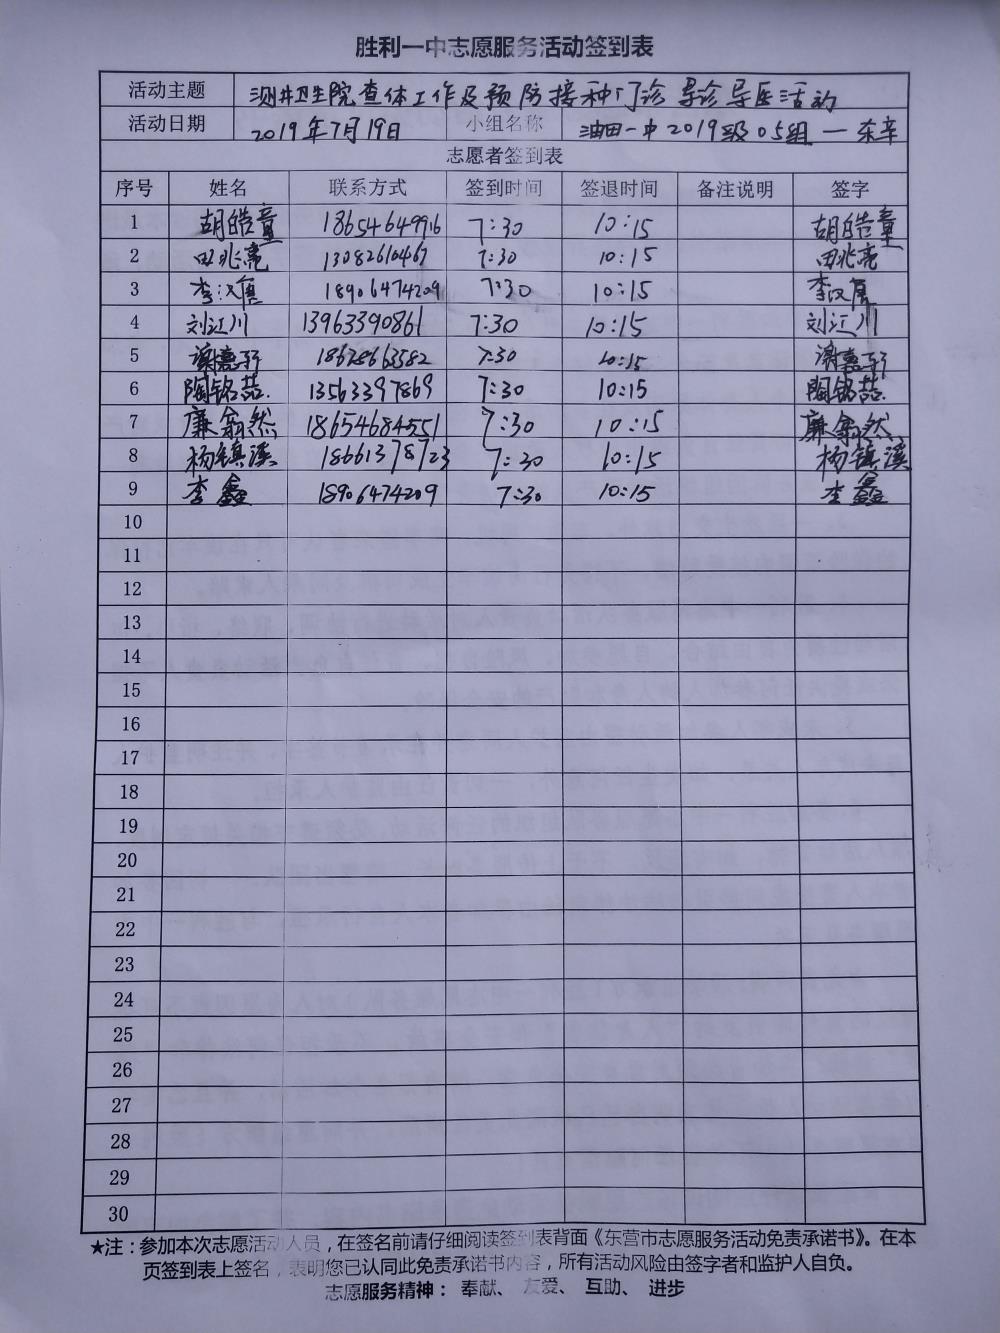 胜利一中志愿服务活动签到表
活动主题 测井卫生院查体工作及预防接种门诊导诊导医活动
活动日期 2019年7月19日 小组名称 油田一中2019级05组—东辛
志愿者签到表
序号 姓名 联系方式 签到时间 签退时间 备注说明 签字
1 胡皓童 18654649916 7:30 10:15 胡皓童
2 田兆亮 13082610467 7:30 10:15 田兆亮
3 李汉 18906474209 7:30 10:15 李汉
4 刘江川 13963390861 7:30 10:15 刘江川
5 谢嘉 18678663582 7:30 10:15 谢嘉
6 陶铭喆 13563397869 7:30 10:15 陶铭喆
7 廉翕然 18654684551 7:30 10:15 廉翕然
8 杨镇溪 18661378723 7:30 10:15 杨镇溪
9 李鑫 18906474209 7:30 10:15 李鑫
10
11
12
13
14
15
16
17
18
19
20
21
22
23
24
25
26
27
28
29
30
★注：参加本次志愿活动人员，在签名前请仔细阅读签到表背面《东营市志愿服务活动免责承诺书》。在本
页签到表上签名，表明您已认同此免责承诺书内容，所有活动风险由签字者和监护人自负。
志愿服务精神： 奉献、 友爱、 互助、 进步